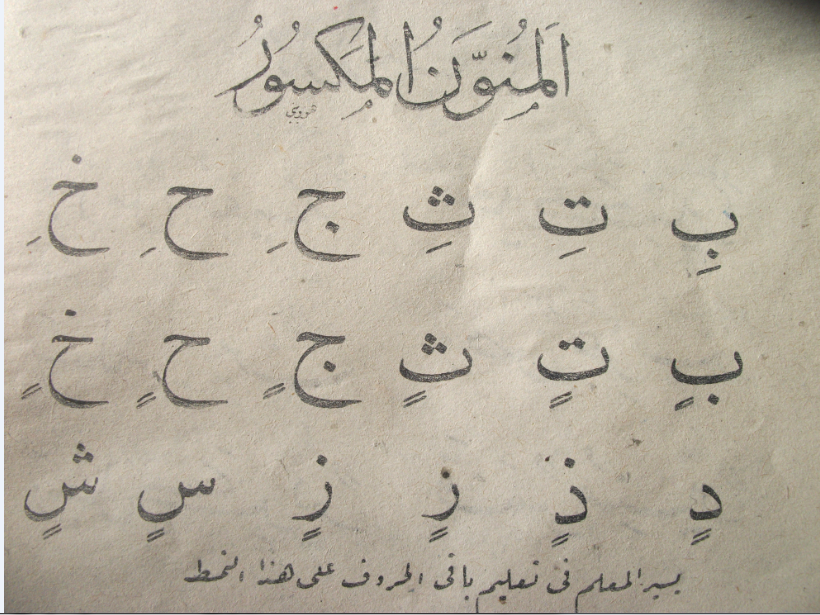 اَلْمُنَوَّنُ الْمَكْسُورُ
بِ تِ ثِ جِ حِ خِ
بٍ تٍ ثٍ جٍ حٍ خٍ
دٍ ذٍ رٍ زٍ سٍ شٍ
يسير المعلم فى تعليم باقى الحروف على هذا النمط